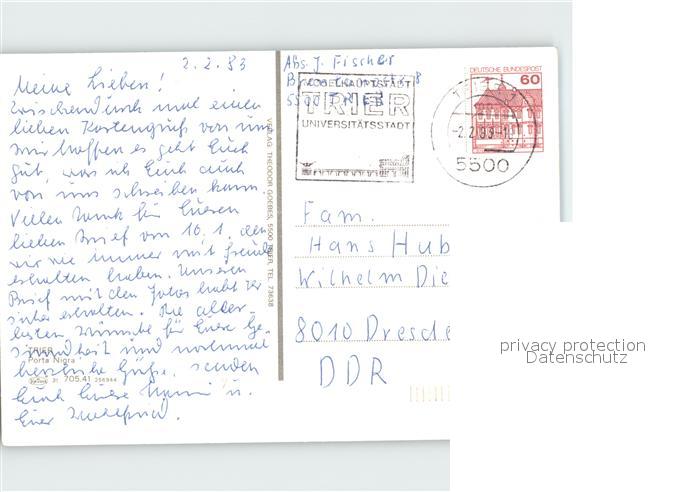 2.2.83
Meine Lieben!
Zwischendurch mal einen
lieben Kartengruß von uns
wir hoffen es geht Euch
gut, was ich Euch auch
von uns schreiben kann.
Vielen Dank für Eueren
lieben Brief vom 10.1. den
wir wie immer mit Freude
erhalten haben. Unseren
Brief mit den Fotos habt Ihr
sicher erhalten. Die aller-
besten Wünsche für Eure Ge-
sundheit und nochmal
herzliche Grüße, senden
Euch Eure u.
Euer
TRIER
Porta Nigra
705.41
VERLAG THEODOR GOEBES, 5500 TRIER, TEL. 73638
Abs. J. Fischer
5500
MOSELHAUPTSTADT
TRIER
UNIVERSITÄTSSTADT
DEUTSCHE BUNDESPOST
60
5500
Fam.
Hans Hub
Wilhelm Die
8010 Dresde
DDR
privacy protection
Datenschutz